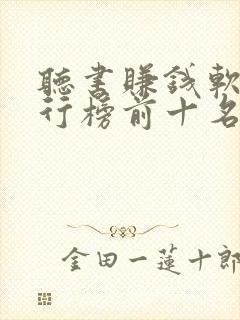 聽書賺錢軟
行榜前十名
金田一蓮十郎